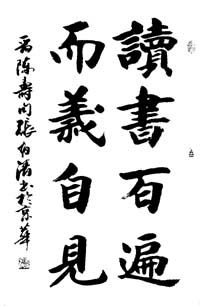 讀書百遍
而義自見
晉陳壽句張伯濤書於京華